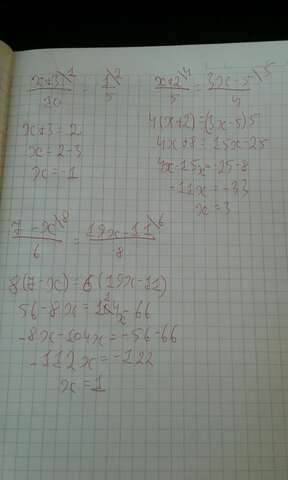 x+3\1 / 10 = 1\2 / 5
x+3=2
x=2-3
x=-1
x+2\4 / 5 = 3x-5\5 / 4
4(x+2)=(3x-5)5
4x+8=15x-25
4x-15x=-25-8
-11x=-33
x=3
7-x\8 / 6 = 19x-11\6 / 8
8(7-x)=6(19x-11)
56-8x=114x-66
-8x-104x=-56-66
-112x=-122
x=1